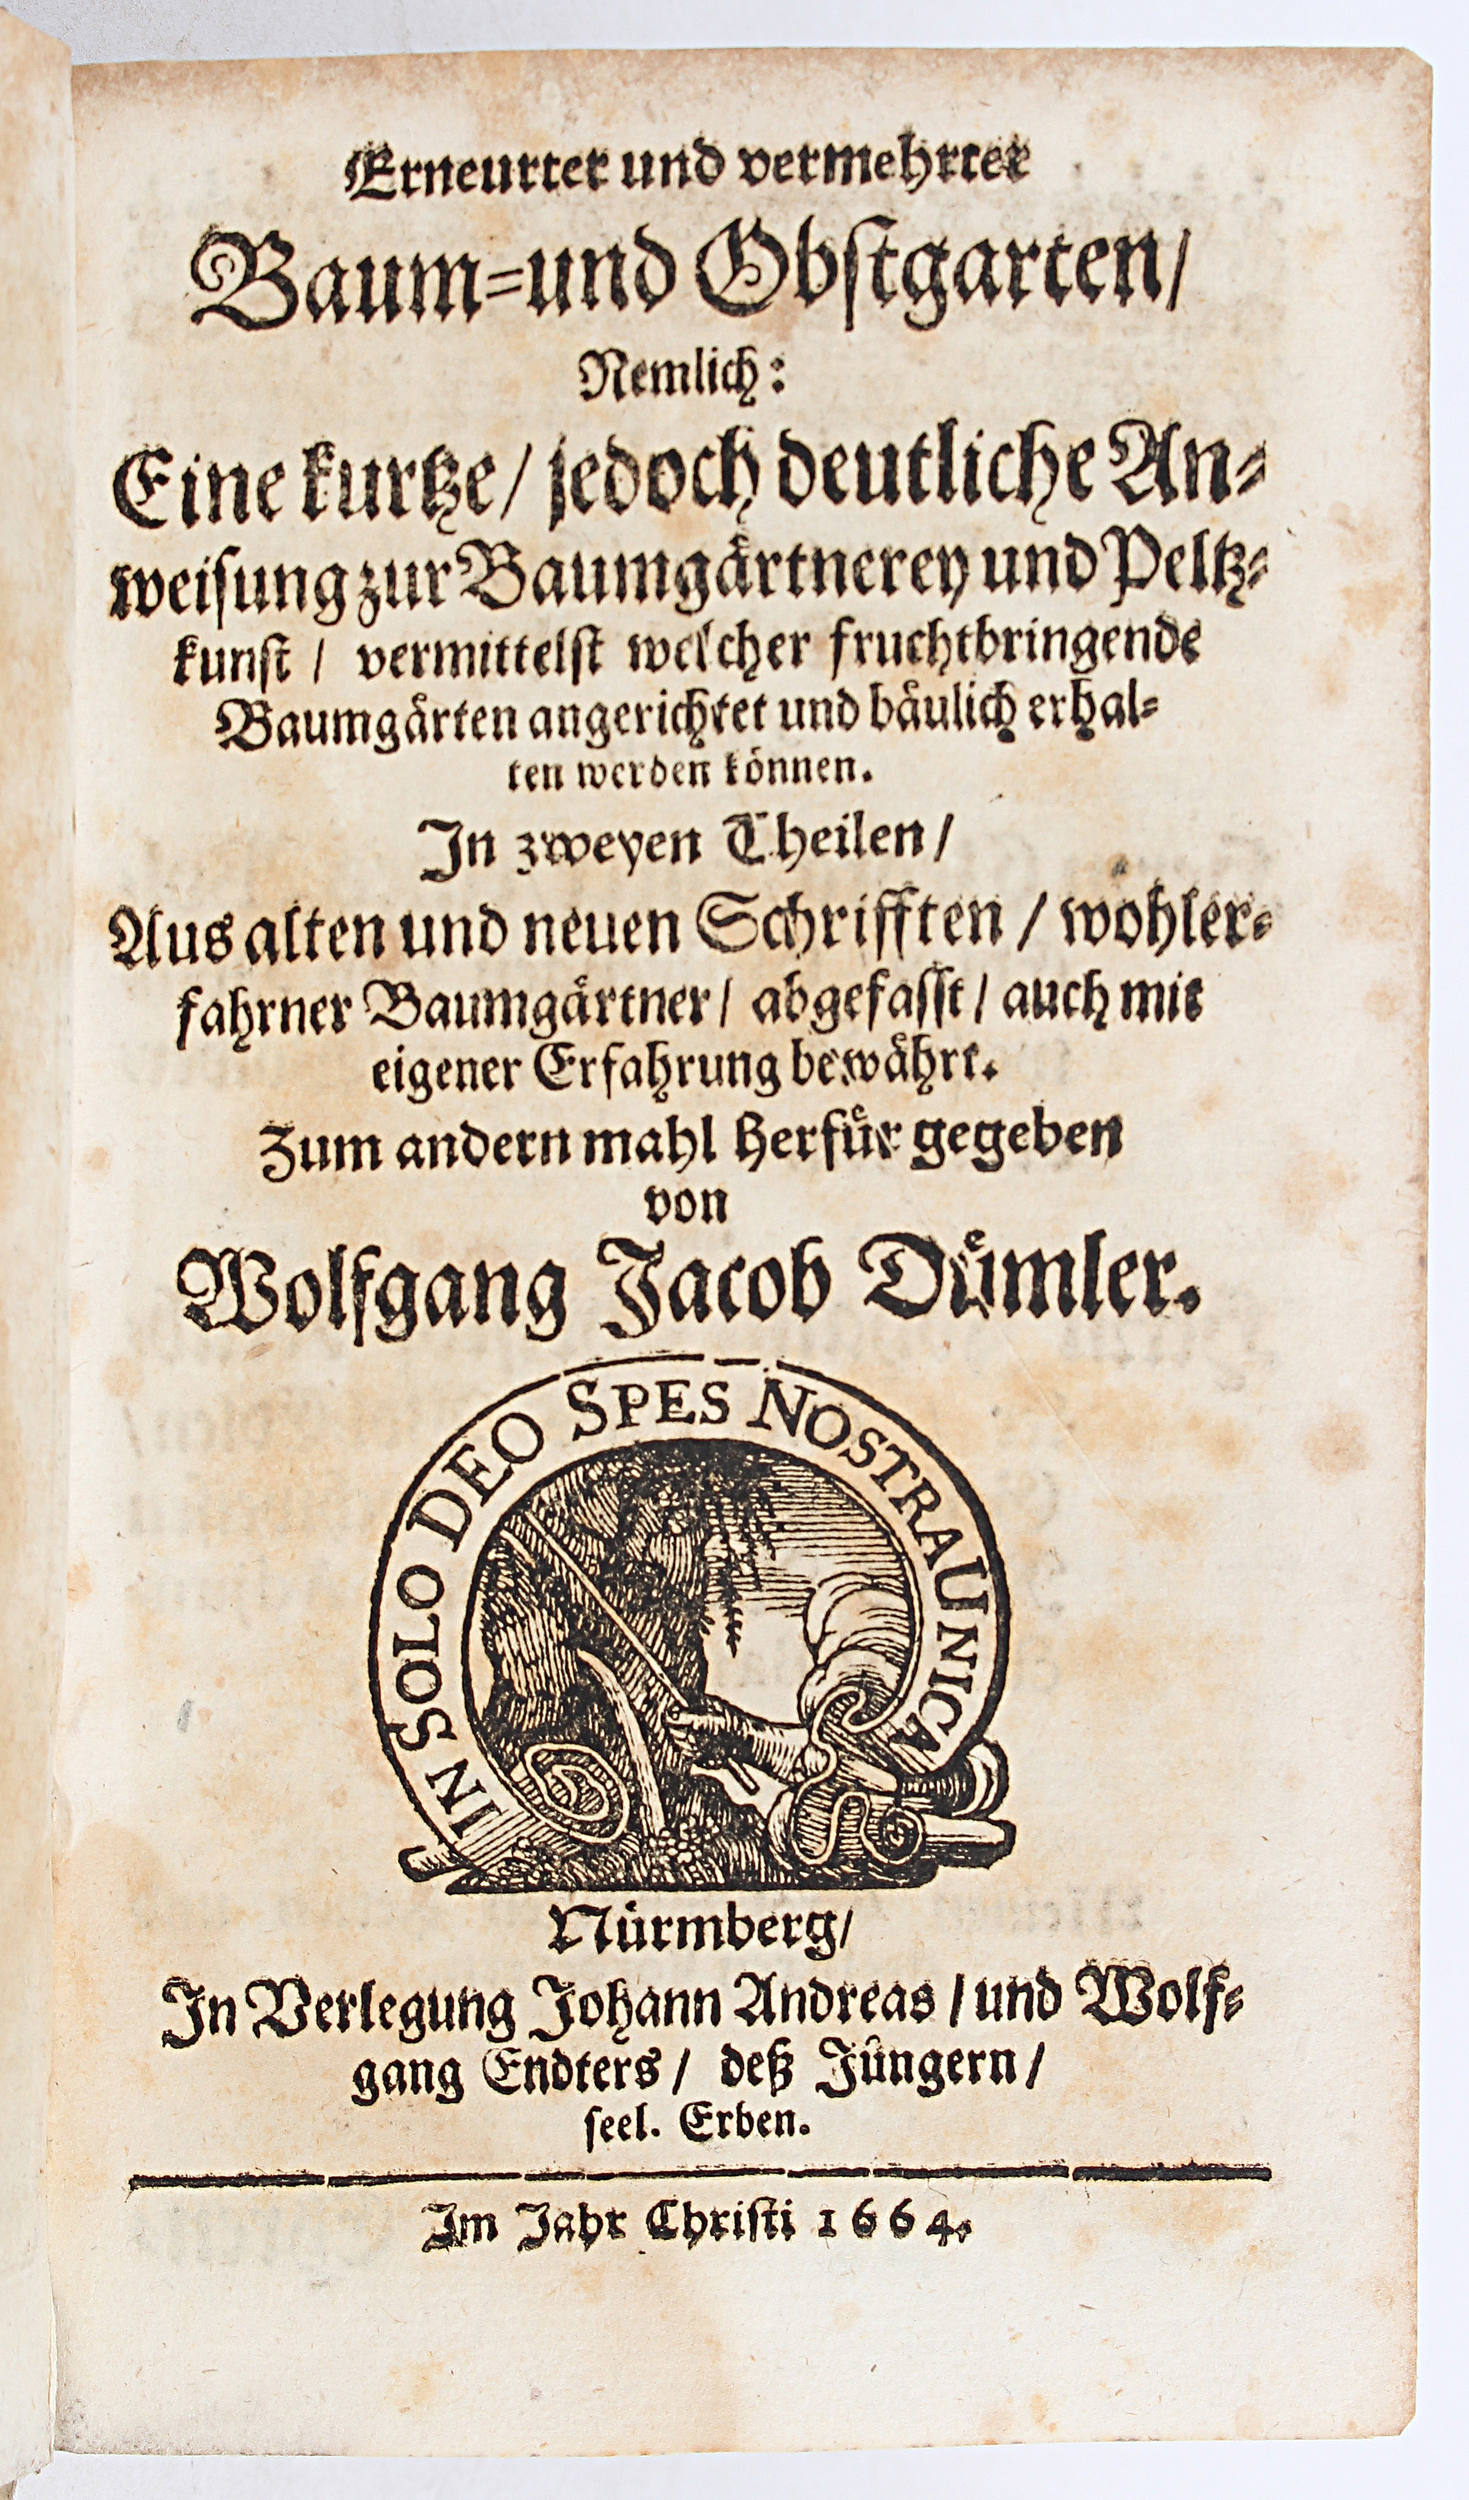 Erneurter und vermehrter
Baum-und Obstgarten/
Nemlich:
Eine kurtze/ jedoch deutliche An-
weisung zur Baumgaͤrtnerey und Peltz-
kunst / vermittelst welcher fruchtbringende
Baumgaͤrten angerichtet und baͤulich erhal-
ten werden koͤnnen.
In zweyen Theilen/
Aus alten und neuen Schrifften / wohler-
fahrner Baumgaͤrtner/ abgefasst/ auch mit
eigener Erfahrung bewaͤhrt.
Zum andern mahl herfuͤr gegeben
von
Wolfgang Jacob Duͤmler.
IN SOLO DEO SPES NOSTRA UNICA
Nürmberg/
In Verlegung Johann Andreas / und Wolf-
gang Endters / deß Juͤngern /
seel. Erben.
Im Jahr Christi 1664.